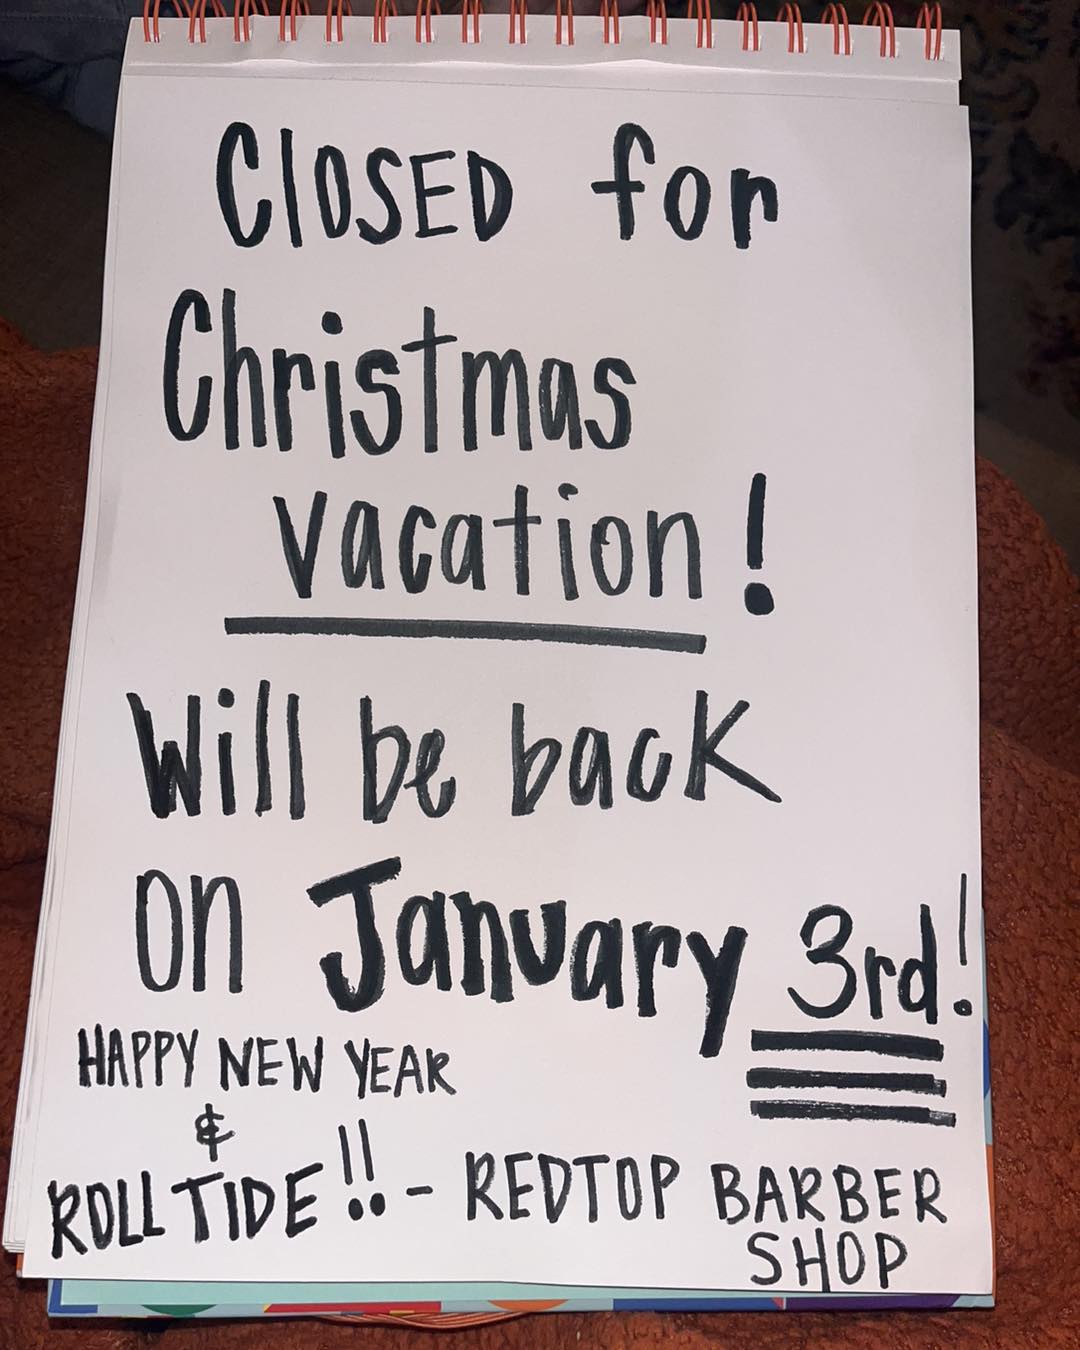 ClOSED for
Christmas
vacation!
Will be back
on January 3rd!
HAPPY NEW YEAR
&
ROLL TIDE!! - REDTOP BARBER
SHOP